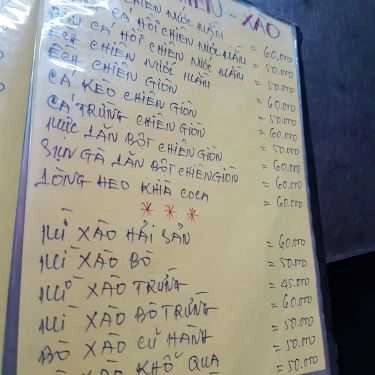 - XÀO
CHIÊN NƯỚC MẮM = 60.000
CÁ HỒI CHIÊN NƯỚC MẮM = 50.000
ẾCH CHIÊN NƯỚC MẮM = 50.000
ẾCH CHIÊN GIÒN = 60.000
CÁ KÈO CHIÊN GIÒN = 60.000
CÁ TRỨNG CHIÊN GIÒN = 50.000
MỰC LĂN BỘT CHIÊN GIÒN = 60.000
SỤN GÀ LĂN BỘT CHIÊN GIÒN = 60.000
LÒNG HEO KHÌA COCA = 60.000
* * *
MÌ XÀO HẢI SẢN = 60.000
MÌ XÀO BÒ = 50.000
MÌ XÀO TRỨNG = 45.000
MÌ XÀO BÒ TRỨNG = 60.000
BÒ XÀO CỦ HÀNH = 50.000
XÀO KHỔ QUA = 50.000
= 50.000